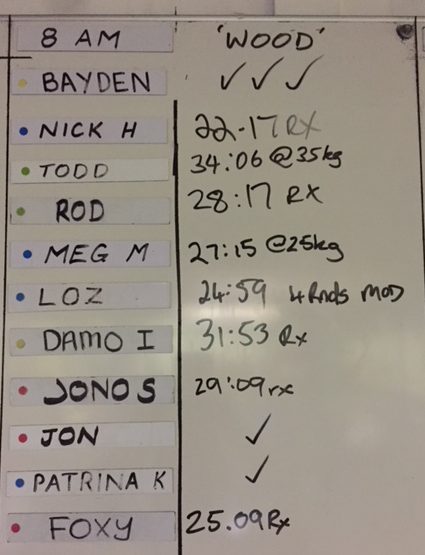 8 AM 'WOOD'
BAYDEN ✓ ✓ ✓
NICK H 22-17 RX
TODD 34:06 @35kg
ROD 28:17 RX
MEG M 27:15 @25kg
LOZ 24:59 4 Rnds MOD
DAMO I 31:53 Rx
JONO S 29:09 rx
JON ✓
PATRINA K ✓
FOXY 25.09 Rx